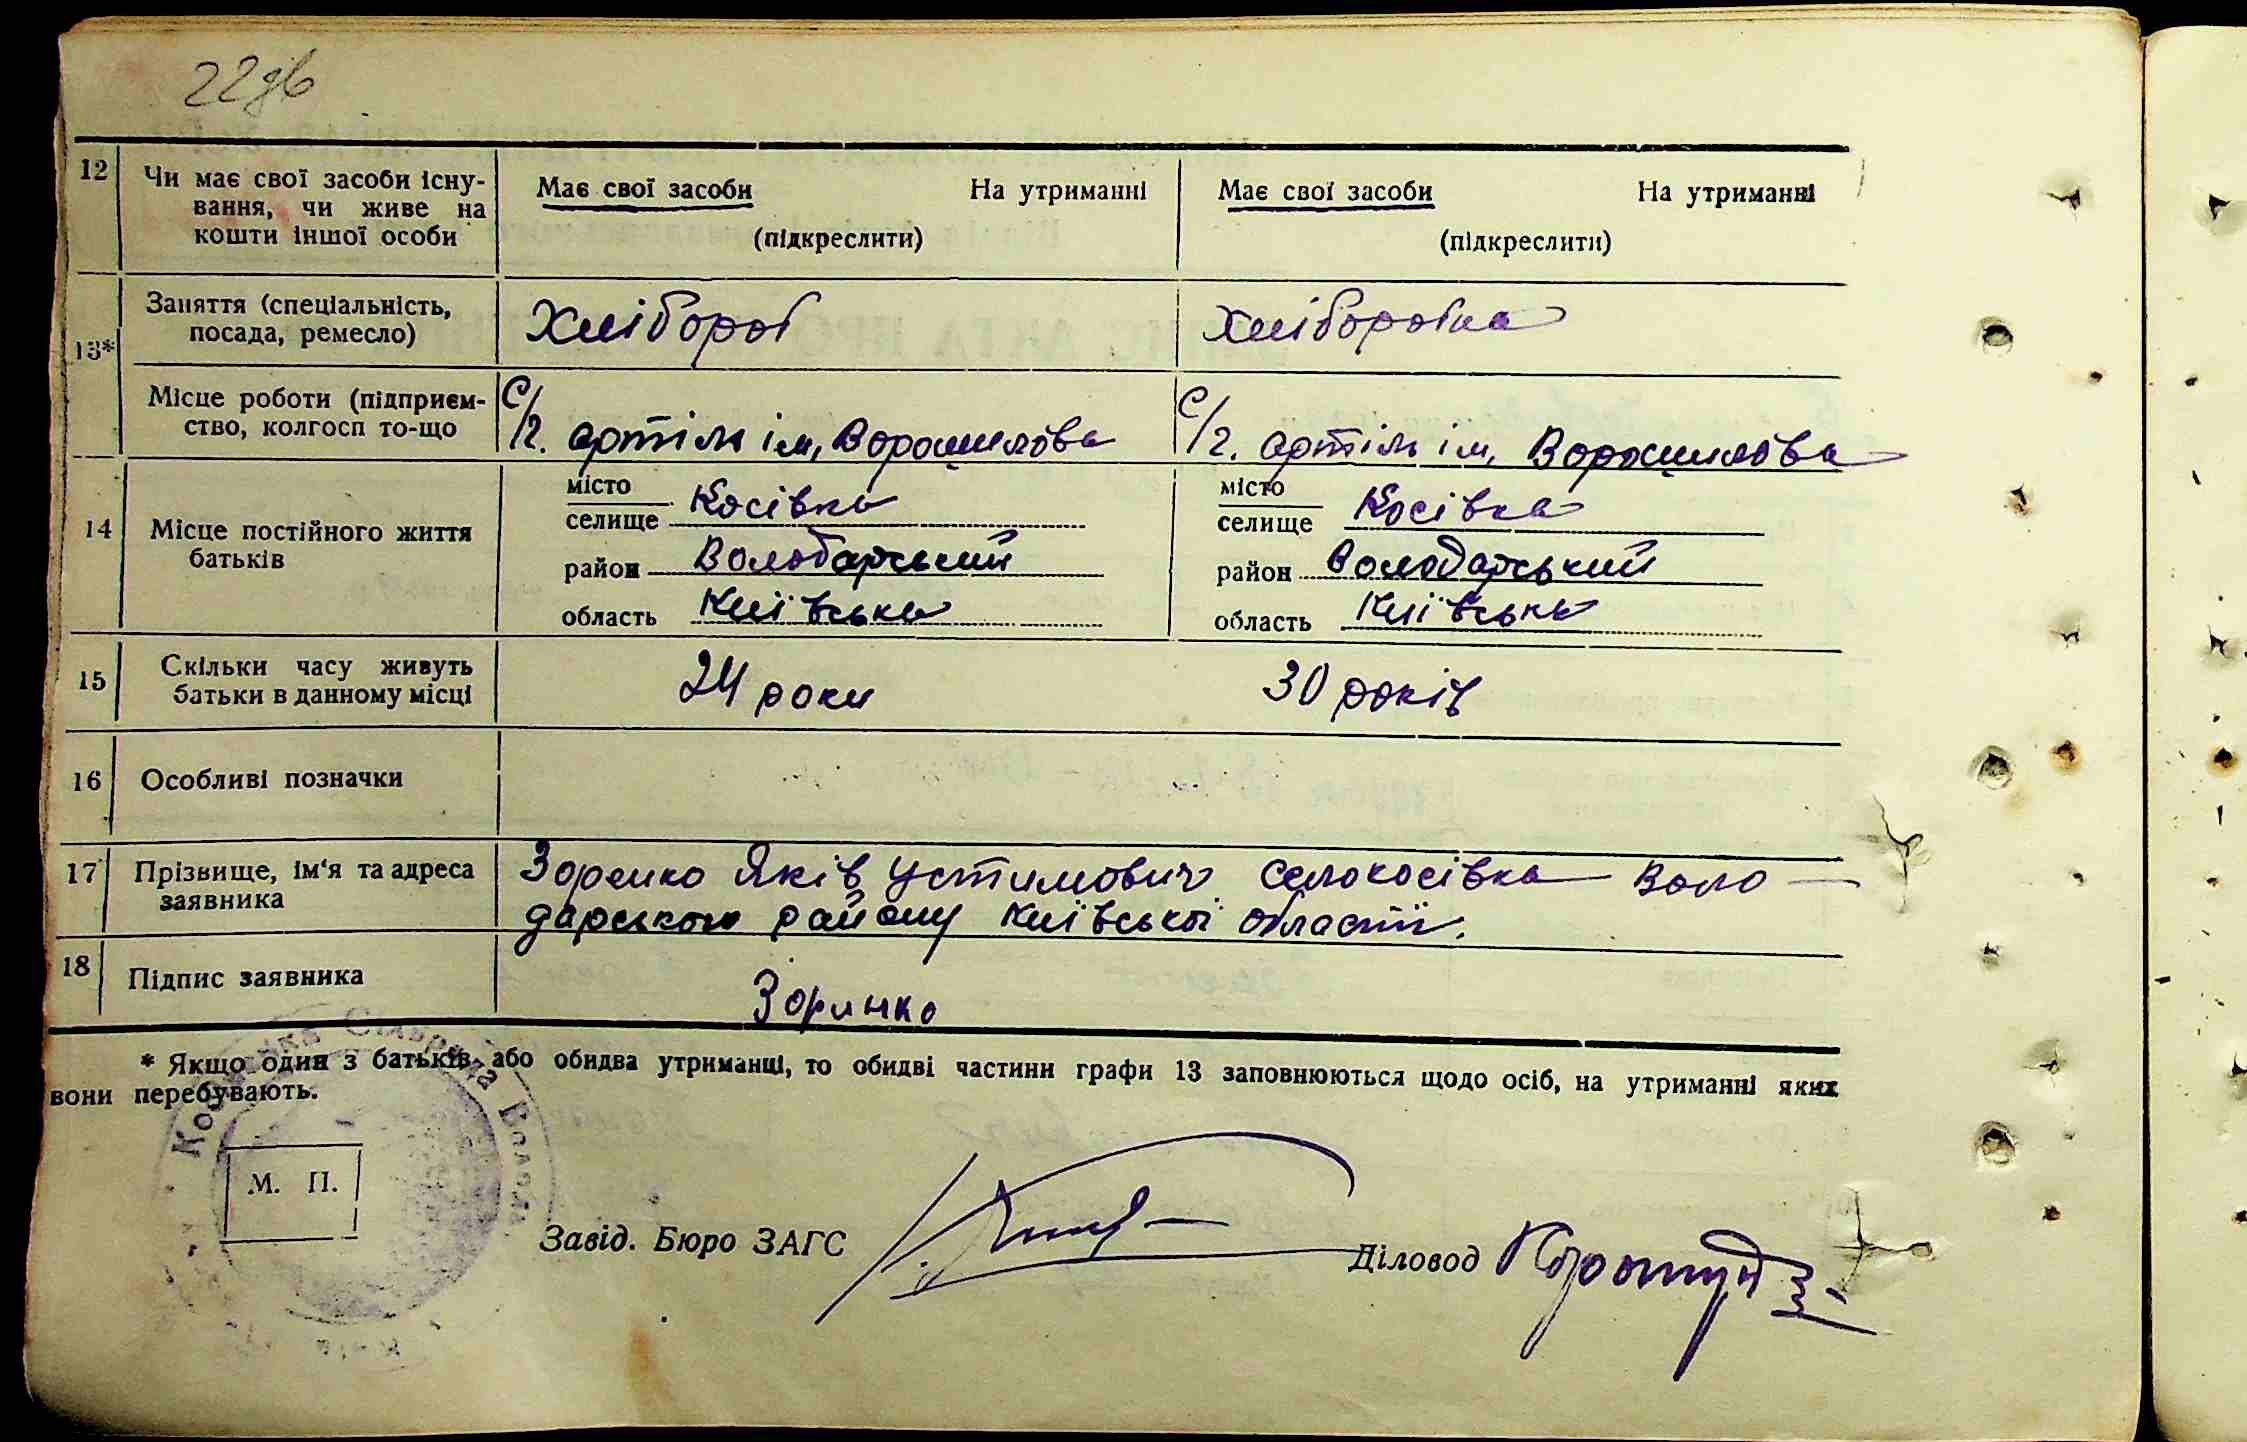 22зв
12 Чи має свої засоби існу- Має свої засоби На утриманні Має свої засоби На утриманні
вання, чи живе на
кошти іншої особи (підкреслити) (підкреслити)
13* Заняття (спеціальність, Хлібороб Хліборобка
посада, ремесло)
Місце роботи (підприєм- с/г. артіль ім. Ворошилова с/г. артіль ім. Ворошилова
ство, колгосп то-що
14 Місце постійного життя місто Косівка місто Косівка
батьків селище селище
район Володарський район Володарський
область Київська область Київська
15 Скільки часу живуть 24 роки 30 років
батьки в данному місці
16 Особливі позначки
17 Прізвище, ім'я та адреса Зоренко Яків Устимович село косівка Воло-
заявника дарського району Київської області.
18 Підпис заявника Зоринко
* Якщо один з батьків або обидва утриманці, то обидві частини графи 13 заповнюються щодо осіб, на утриманні яких
вони перебувають.
Сільрада
М. П.
Завід. Бюро ЗАГС Діловод